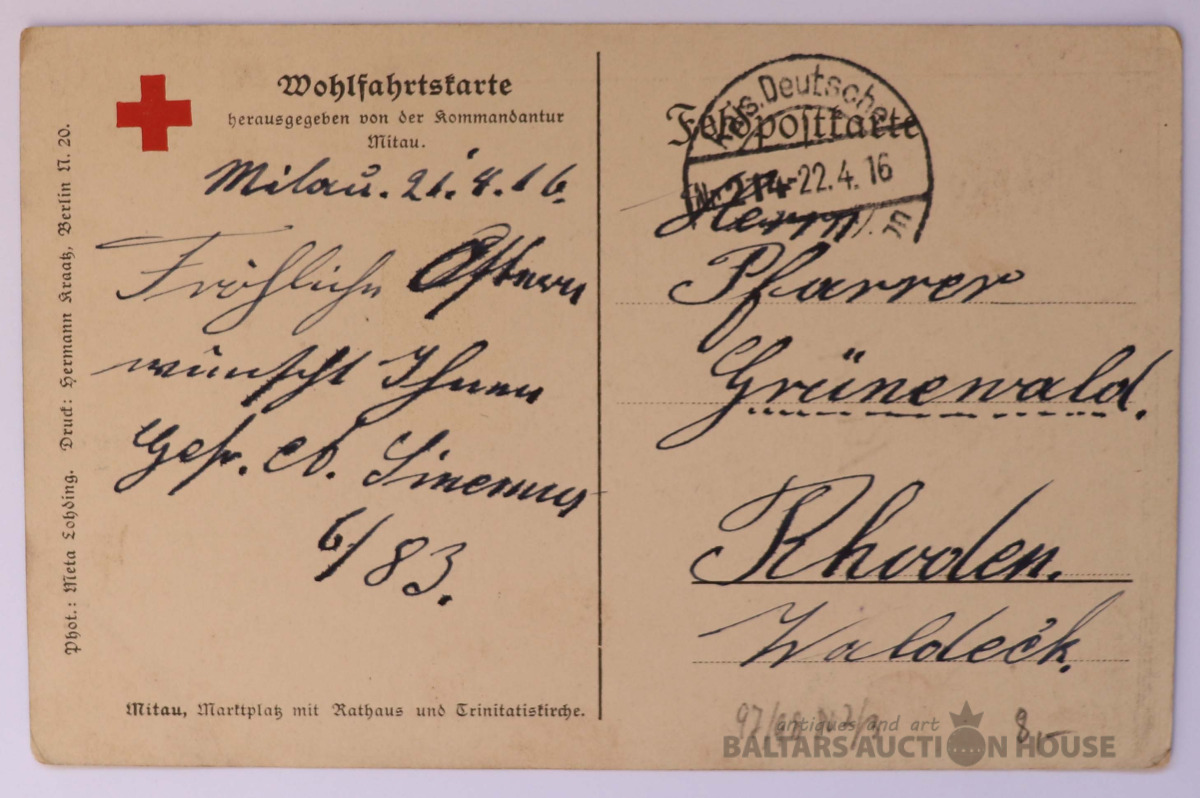 Wohlfahrtskarte
herausgegeben von der Kommandantur
Mitau.
Mitau. 21.4.16.
Fröhliche Ostern
wünscht Ihnen
Gefr. Sinemus
6/83.
Phot.: Meta Lohding. Druck: Hermann Kraatz, Berlin N. 20.
Mitau, Marktplatz mit Rathaus und Trinitatiskirche.
Feldpostkarte
Kais. Deutsche
Nr. 214 -22.4.16
Herrn
Pfarrer
Grünewald.
Rhoden.
Waldeck.
8,-
antiques and art
BALTARS AUCTION HOUSE